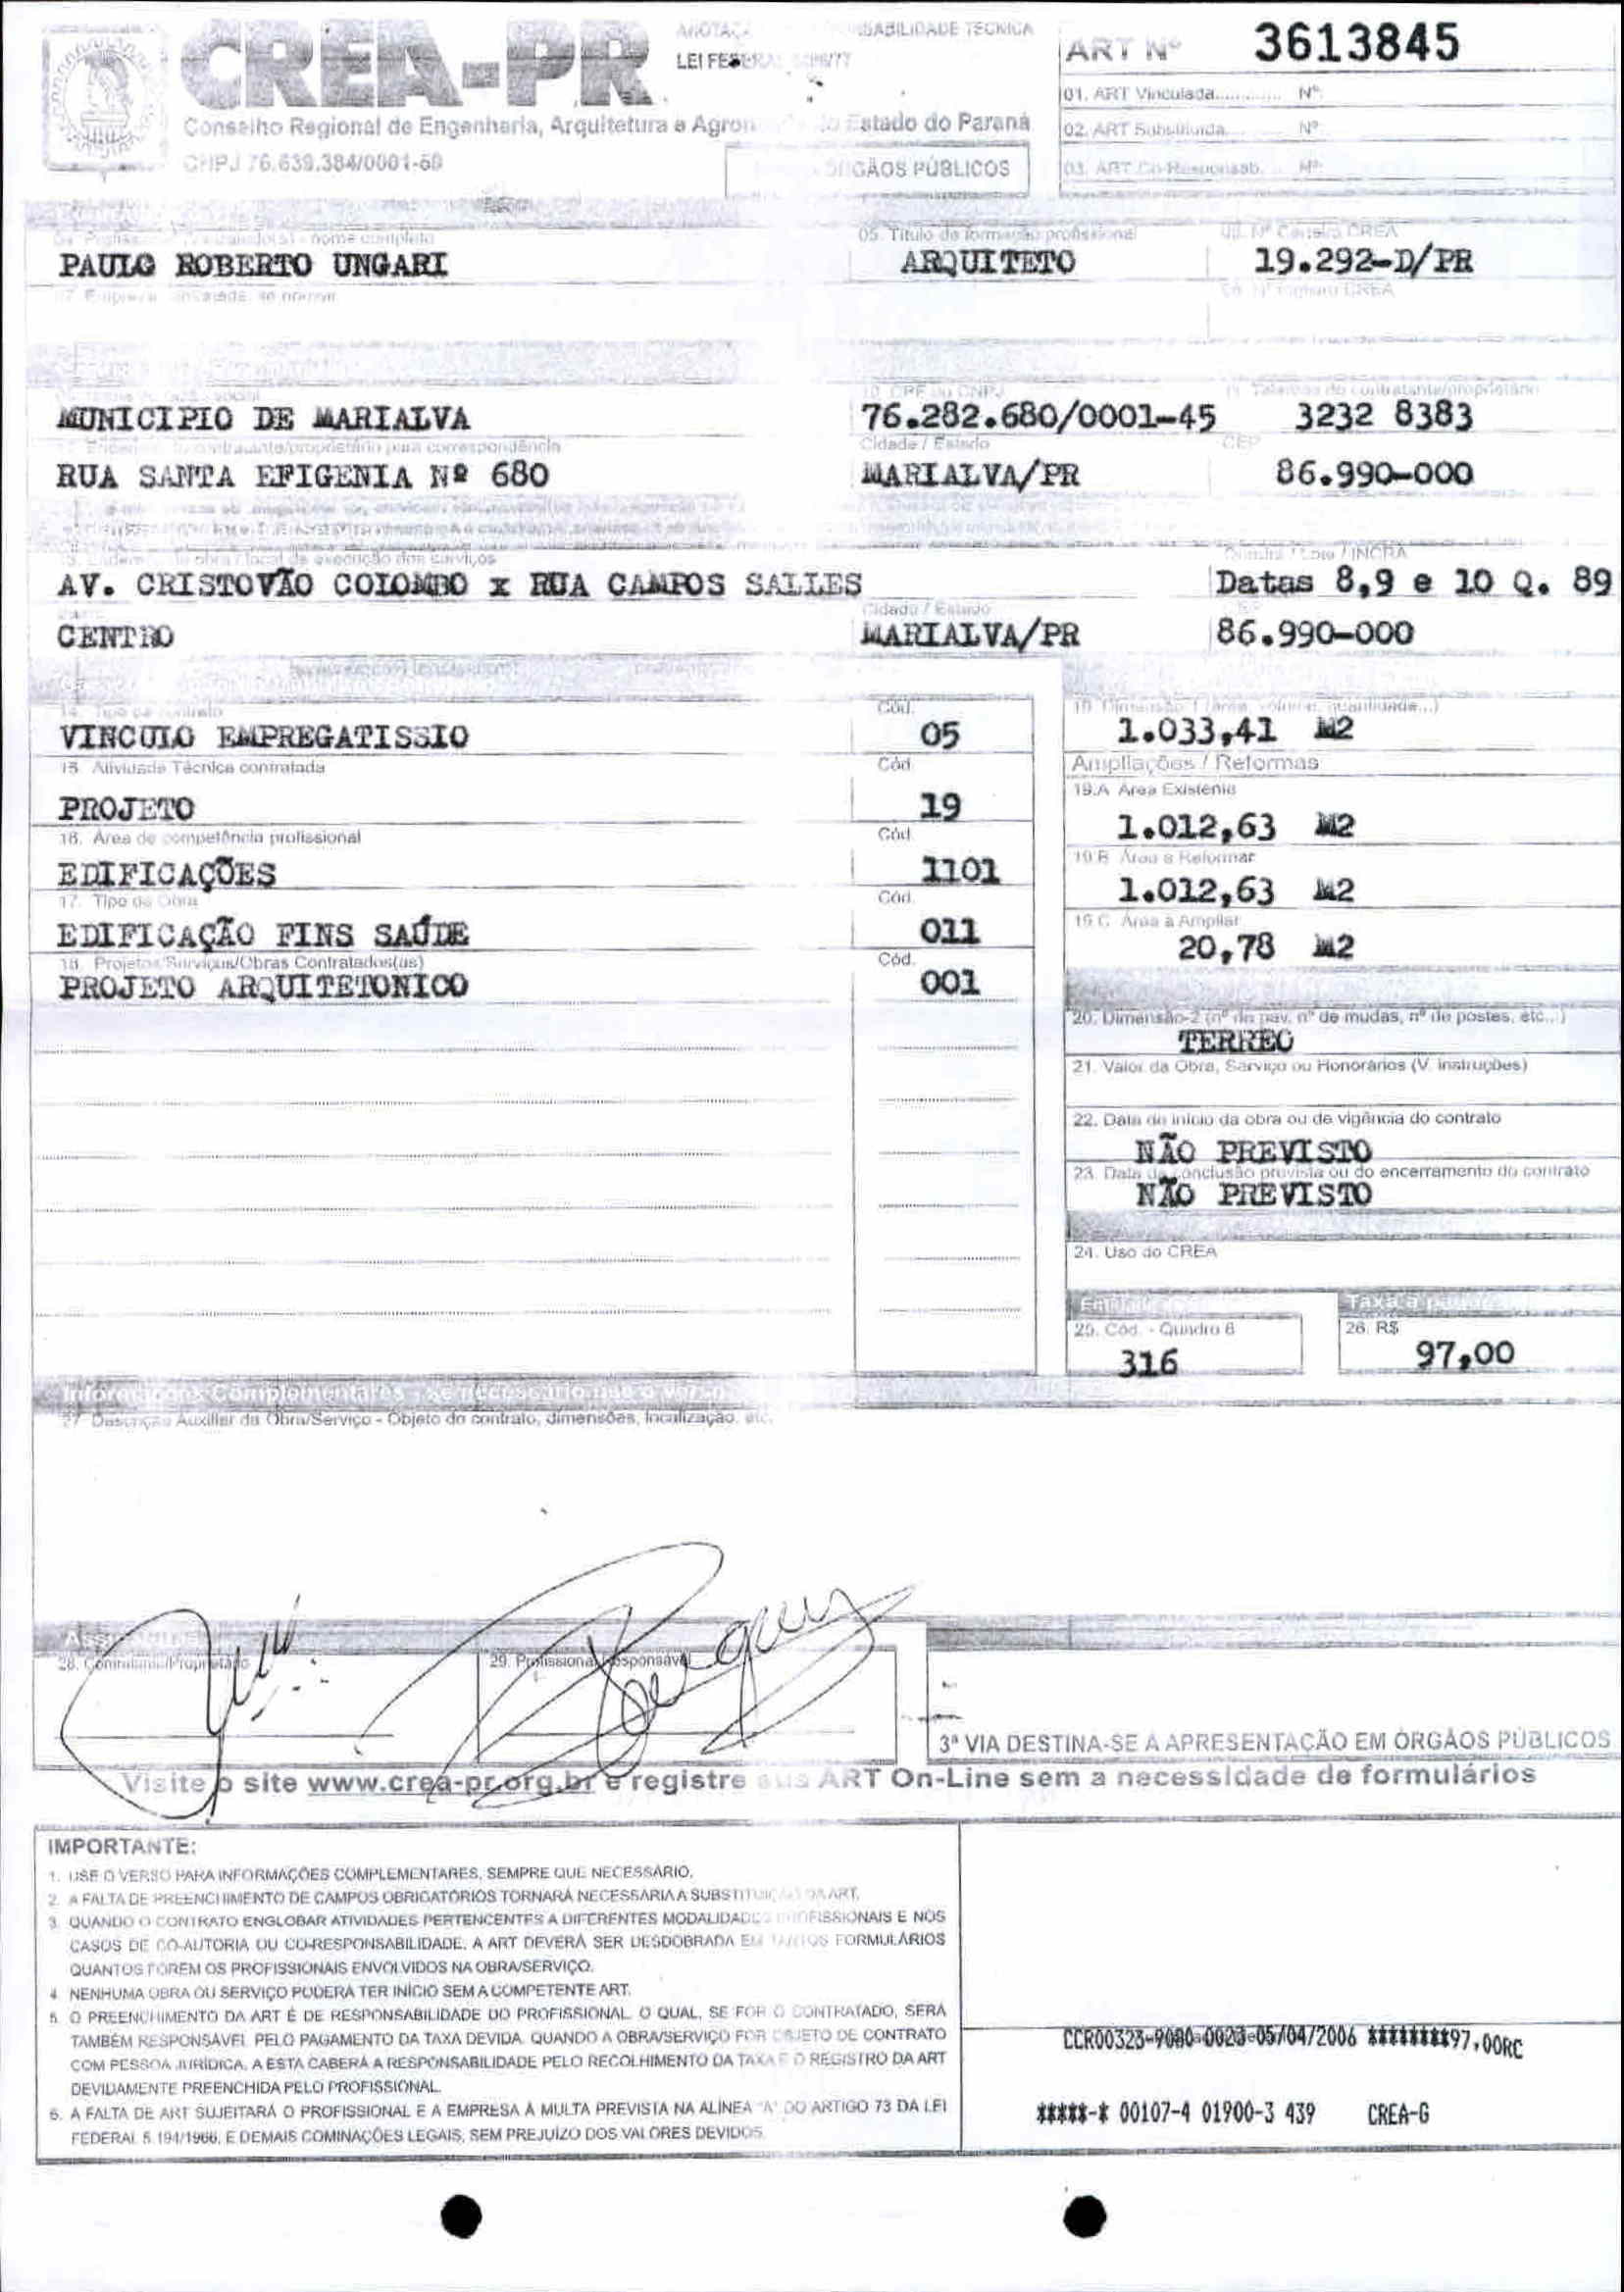 CREA-PR
LEI FEDERAL
Conselho Regional de Engenharia, Arquitetura e Agron Estado do Paraná
CNPJ 76.639.384/0001-50
ÓRGÃOS PÚBLICOS
ART Nº 3613845
01. ART Vinculada............. Nº
02. ART Substituida... Nº
03. ART Co-Responsab. Nº
nome completo
05. Título de formação profissional
Nº Carteira CREA
PAULO ROBERTO UNGARI ARQUITETO 19.292-D/PR
10. CPF ou CNPJ
MUNICIPIO DE MARIALVA 76.282.680/0001-45 3232 8383
contratante/proprietário para correspondência Cidade / Estado CEP
RUA SANTA EFIGENIA Nº 680 MARIALVA/PR 86.990-000
obra / local de execução dos serviços Quadra / Lote / INCRA
AV. CRISTOVÃO COLOMBO x RUA CAMPOS SALLES Datas 8,9 e 10 Q. 89
Cidade / Estado
CENTRO MARIALVA/PR 86.990-000
14. Tipo de contrato Cód.
VINCULO EMPREGATISSIO 05
15. Atividade Técnica contratada Cód.
PROJETO 19
16. Área de competência profissional Cód.
EDIFICAÇÕES 1101
17. Tipo de Obra Cód.
EDIFICAÇÃO FINS SAÚDE 011
18. Projetos/Serviços/Obras Contratados(as) Cód.
PROJETO ARQUITETONICO 001
1.033,41 M2
Ampliações / Reformas
19.A Área Existente
1.012,63 M2
19.B Área a Reformar
1.012,63 M2
19.C Área a Ampliar
20,78 M2
20. Dimensão-2 (nº de pav. nº de mudas, nº de postes, etc...)
TERREO
21. Valor da Obra, Serviço ou Honorários (V. instruções)
22. Data do início da obra ou de vigência do contrato
NÃO PREVISTO
23. Data da conclusão prevista ou do encerramento do contrato
NÃO PREVISTO
24. Uso do CREA
25. Cód. - Quadro 6
316
Taxa a
26. R$
97,00
Informações Complementares - se necessário use o verso
27. Descrição Auxiliar da Obra/Serviço - Objeto do contrato, dimensões, localização, etc.
28. Contratante/Proprietário
29. Profissional Responsável
3ª VIA DESTINA-SE A APRESENTAÇÃO EM ÓRGÃOS PÚBLICOS
Visite o site www.crea-pr.org.br e registre sua ART On-Line sem a necessidade de formulários
IMPORTANTE:
1. USE O VERSO PARA INFORMAÇÕES COMPLEMENTARES, SEMPRE QUE NECESSÁRIO.
2. A FALTA DE PREENCHIMENTO DE CAMPOS OBRIGATÓRIOS TORNARÁ NECESSÁRIA A SUBSTITUIÇÃO DA ART.
3. QUANDO O CONTRATO ENGLOBAR ATIVIDADES PERTENCENTES A DIFERENTES MODALIDADES PROFISSIONAIS E NOS
CASOS DE CO-AUTORIA OU CO-RESPONSABILIDADE, A ART DEVERÁ SER DESDOBRADA EM TANTOS FORMULÁRIOS
QUANTOS FOREM OS PROFISSIONAIS ENVOLVIDOS NA OBRA/SERVIÇO.
4. NENHUMA OBRA OU SERVIÇO PODERÁ TER INÍCIO SEM A COMPETENTE ART.
5. O PREENCHIMENTO DA ART É DE RESPONSABILIDADE DO PROFISSIONAL O QUAL, SE FOR O CONTRATADO, SERÁ
TAMBÉM RESPONSÁVEL PELO PAGAMENTO DA TAXA DEVIDA. QUANDO A OBRA/SERVIÇO FOR OBJETO DE CONTRATO
COM PESSOA JURÍDICA, A ESTA CABERÁ A RESPONSABILIDADE PELO RECOLHIMENTO DA TAXA E O REGISTRO DA ART
DEVIDAMENTE PREENCHIDA PELO PROFISSIONAL.
6. A FALTA DE ART SUJEITARÁ O PROFISSIONAL E A EMPRESA À MULTA PREVISTA NA ALÍNEA "A" DO ARTIGO 73 DA LEI
FEDERAL 5.194/1966, E DEMAIS COMINAÇÕES LEGAIS, SEM PREJUÍZO DOS VALORES DEVIDOS.
CCR00323-9080-0023-05/04/2006 ********97,00RC
*****-* 00107-4 01900-3 439 CREA-G